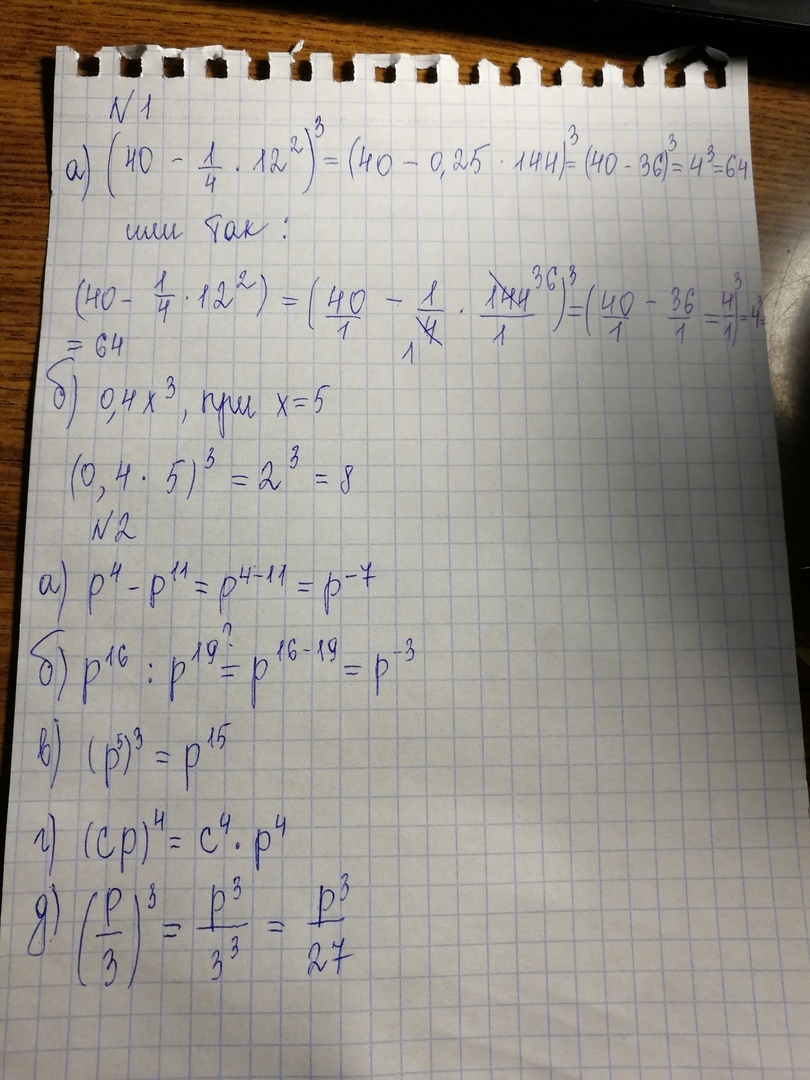 N1
а) (40 - 1/4 · 12²)³ = (40 - 0,25 · 144)³ = (40 - 36)³ = 4³ = 64
или так:
(40 - 1/4 · 12²) = (40/1 - 1/4 1 · 144/1 36)³ = (40/1 - 36/1 = 4/1)³ = 4³ =
= 64
б) 0,4x³, при x = 5
(0,4 · 5)³ = 2³ = 8
N2
а) p⁴ - p¹¹ = p⁴⁻¹¹ = p⁻⁷
б) p¹⁶ : p¹⁹ =? p¹⁶⁻¹⁹ = p⁻³
в) (p⁵)³ = p¹⁵
г) (cp)⁴ = c⁴ · p⁴
д) (p/3)³ = p³/3³ = p³/27